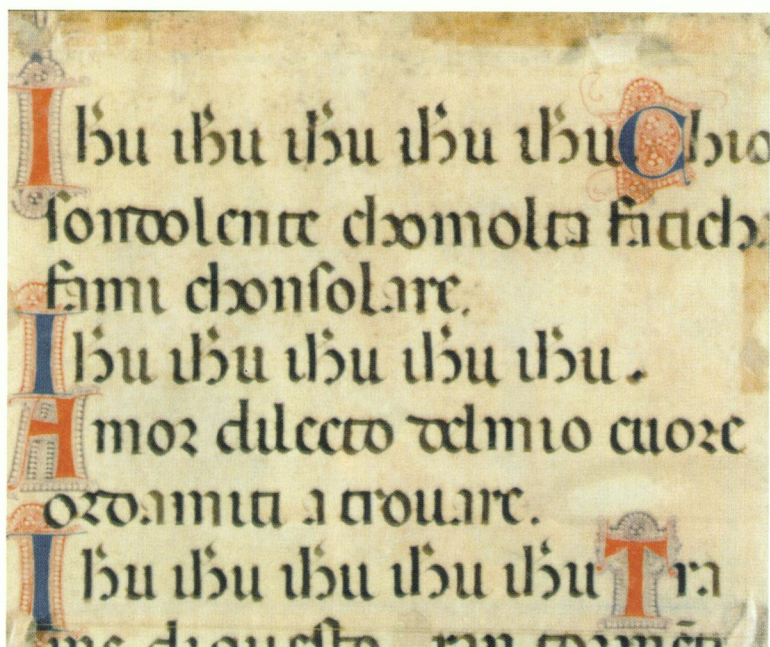 Ihu ihu ihu ihu ihu Chio
son dolente chomolta faticha
fami chonsolare.
Ihu ihu ihu ihu ihu.
Amor dilecto delmio cuore
ordamiti a trouare.
Ihu ihu ihu ihu ihu Tra
me diquesto